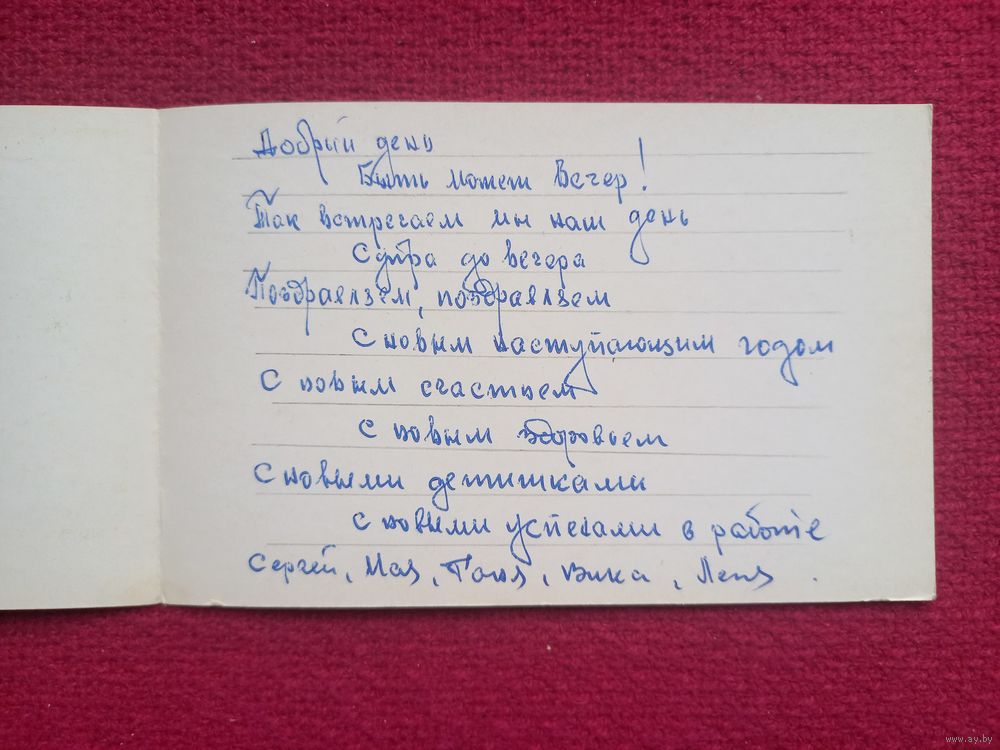 Добрий день
Быть может Вечер!
Так встречаем мы наш день
С утра до вечера
Поздравляем, поздравляем
С новым наступающим годом
С новым счастьем
С новым здоровьем
С новыми детишками
С новыми успехами в работе
Сергей, Мая, Таня, Вика, Леня.
www.ay.by